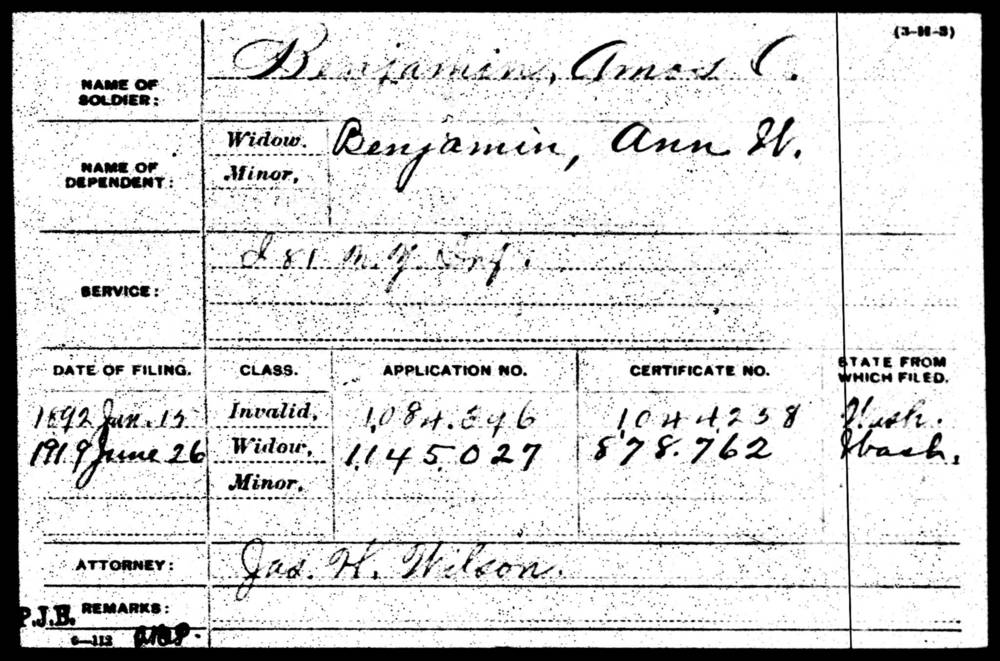 (3-H-3)
NAME OF SOLDIER: Benjamin, Amos C.
NAME OF DEPENDENT: Widow. Benjamin, Ann W.
Minor,
SERVICE: I 81 N.Y. Inf.
DATE OF FILING. CLASS. APPLICATION NO. CERTIFICATE NO. STATE FROM WHICH FILED.
1892 Jan. 15 Invalid, 1,084.346 1,044,238 Wash.
1919 June 26 Widow, 1,145,027 878.762 Wash.
Minor,
ATTORNEY: Jas. H. Wilson.
P.J.B. REMARKS:
6—112